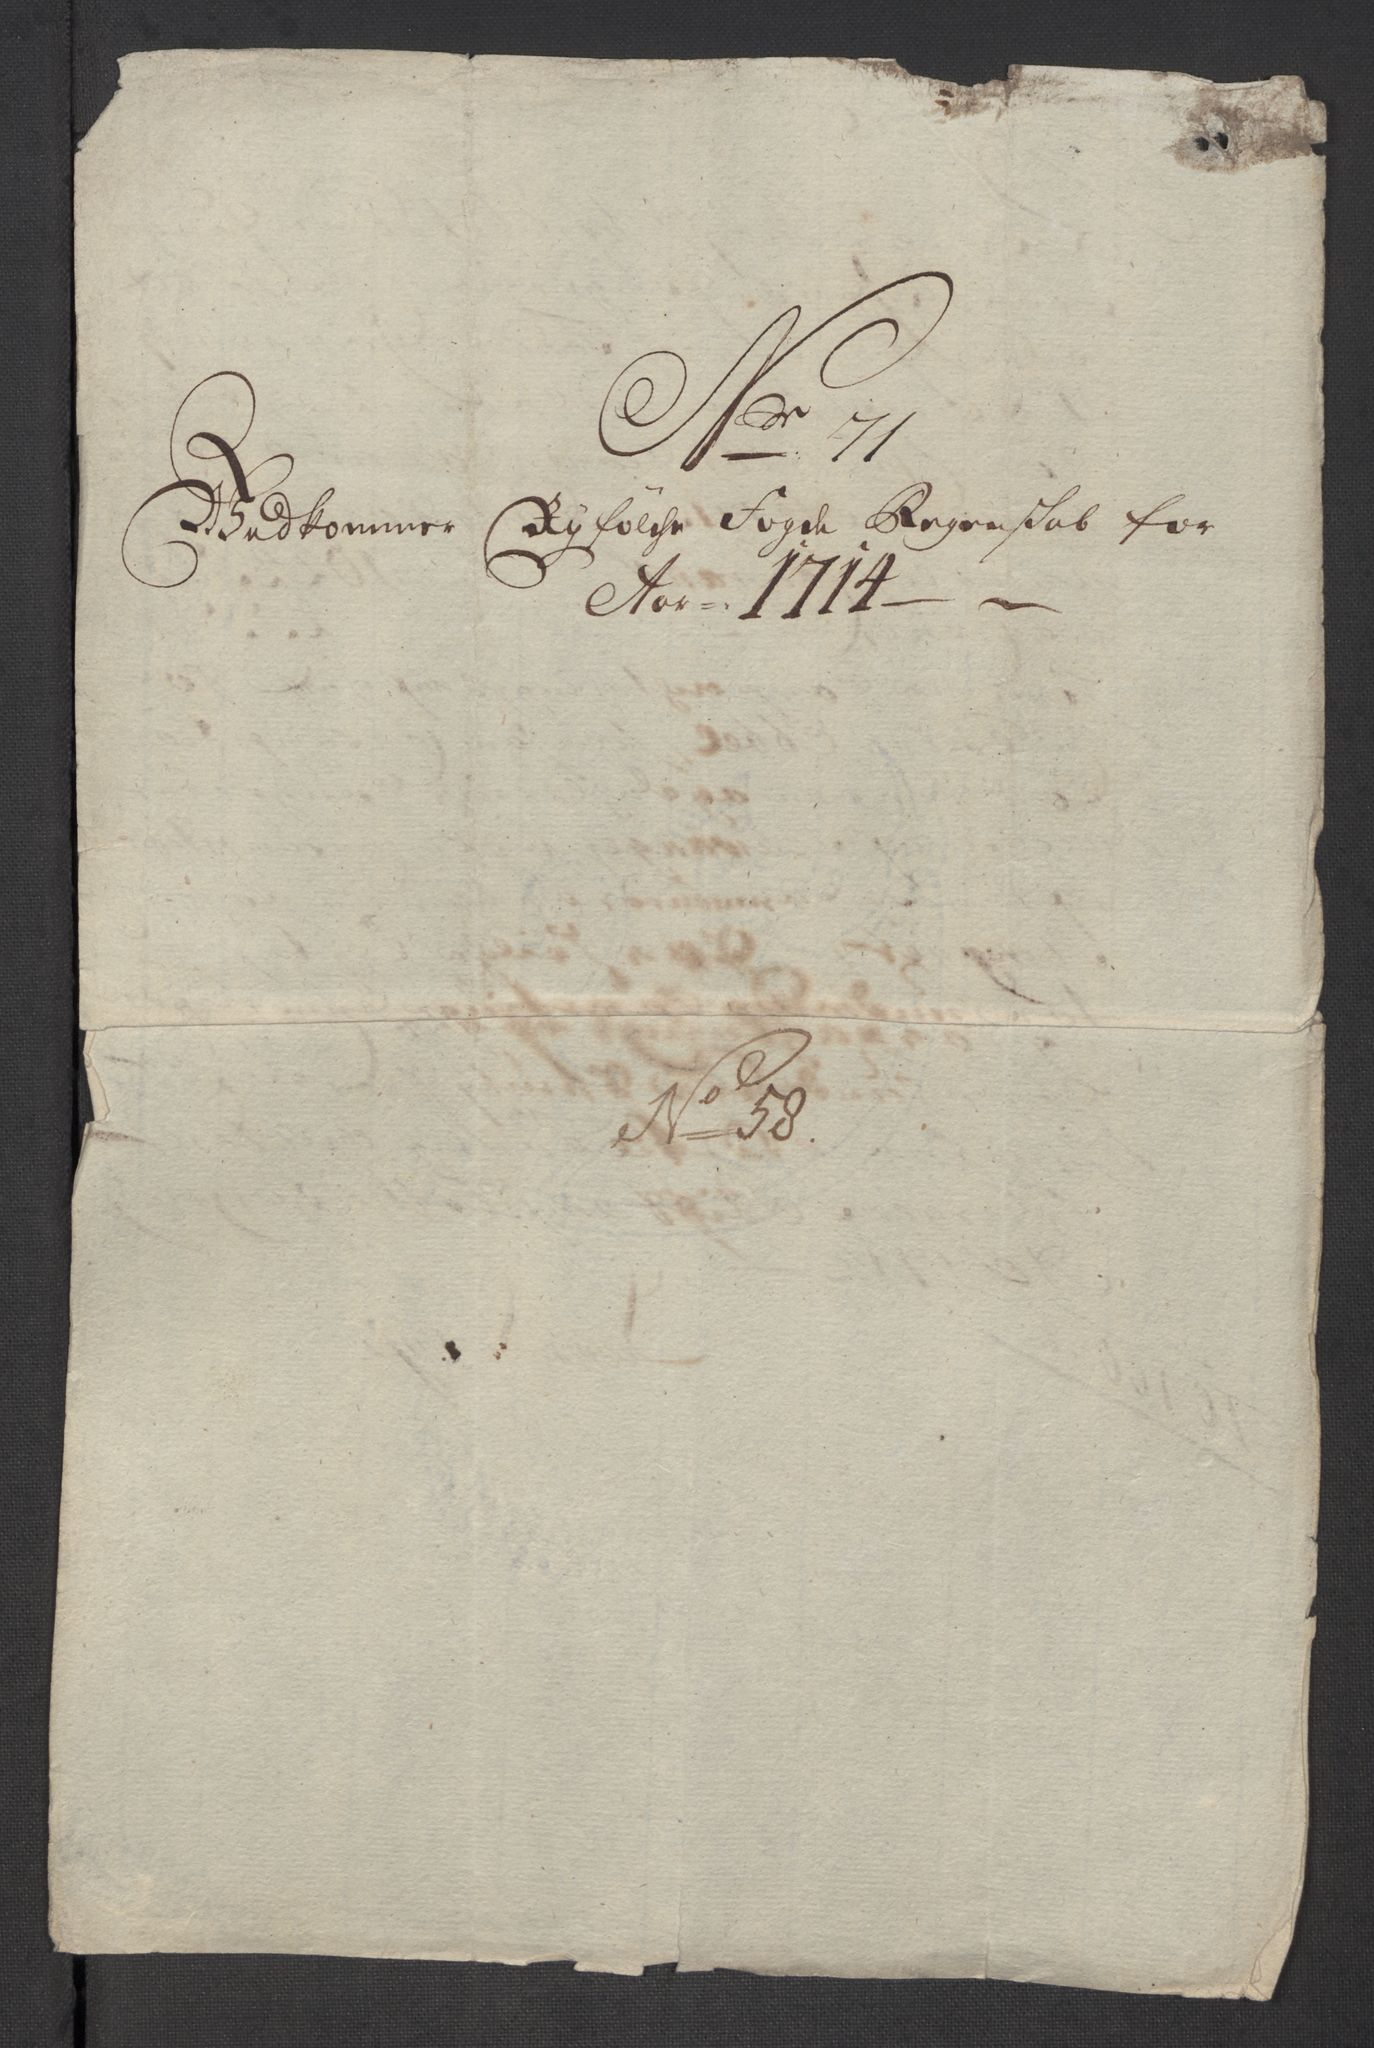 No 71
Vedkommer Ryfölche Fogde Regenskab for
Aar 1714
No 58.